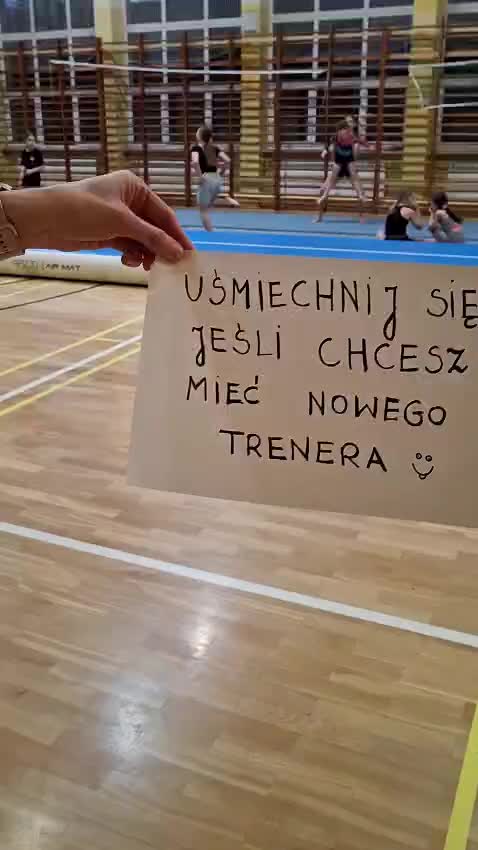 AIR MAT
UŚMIECHNIJ SIĘ
JEŚLI CHCESZ
MIEĆ NOWEGO
TRENERA